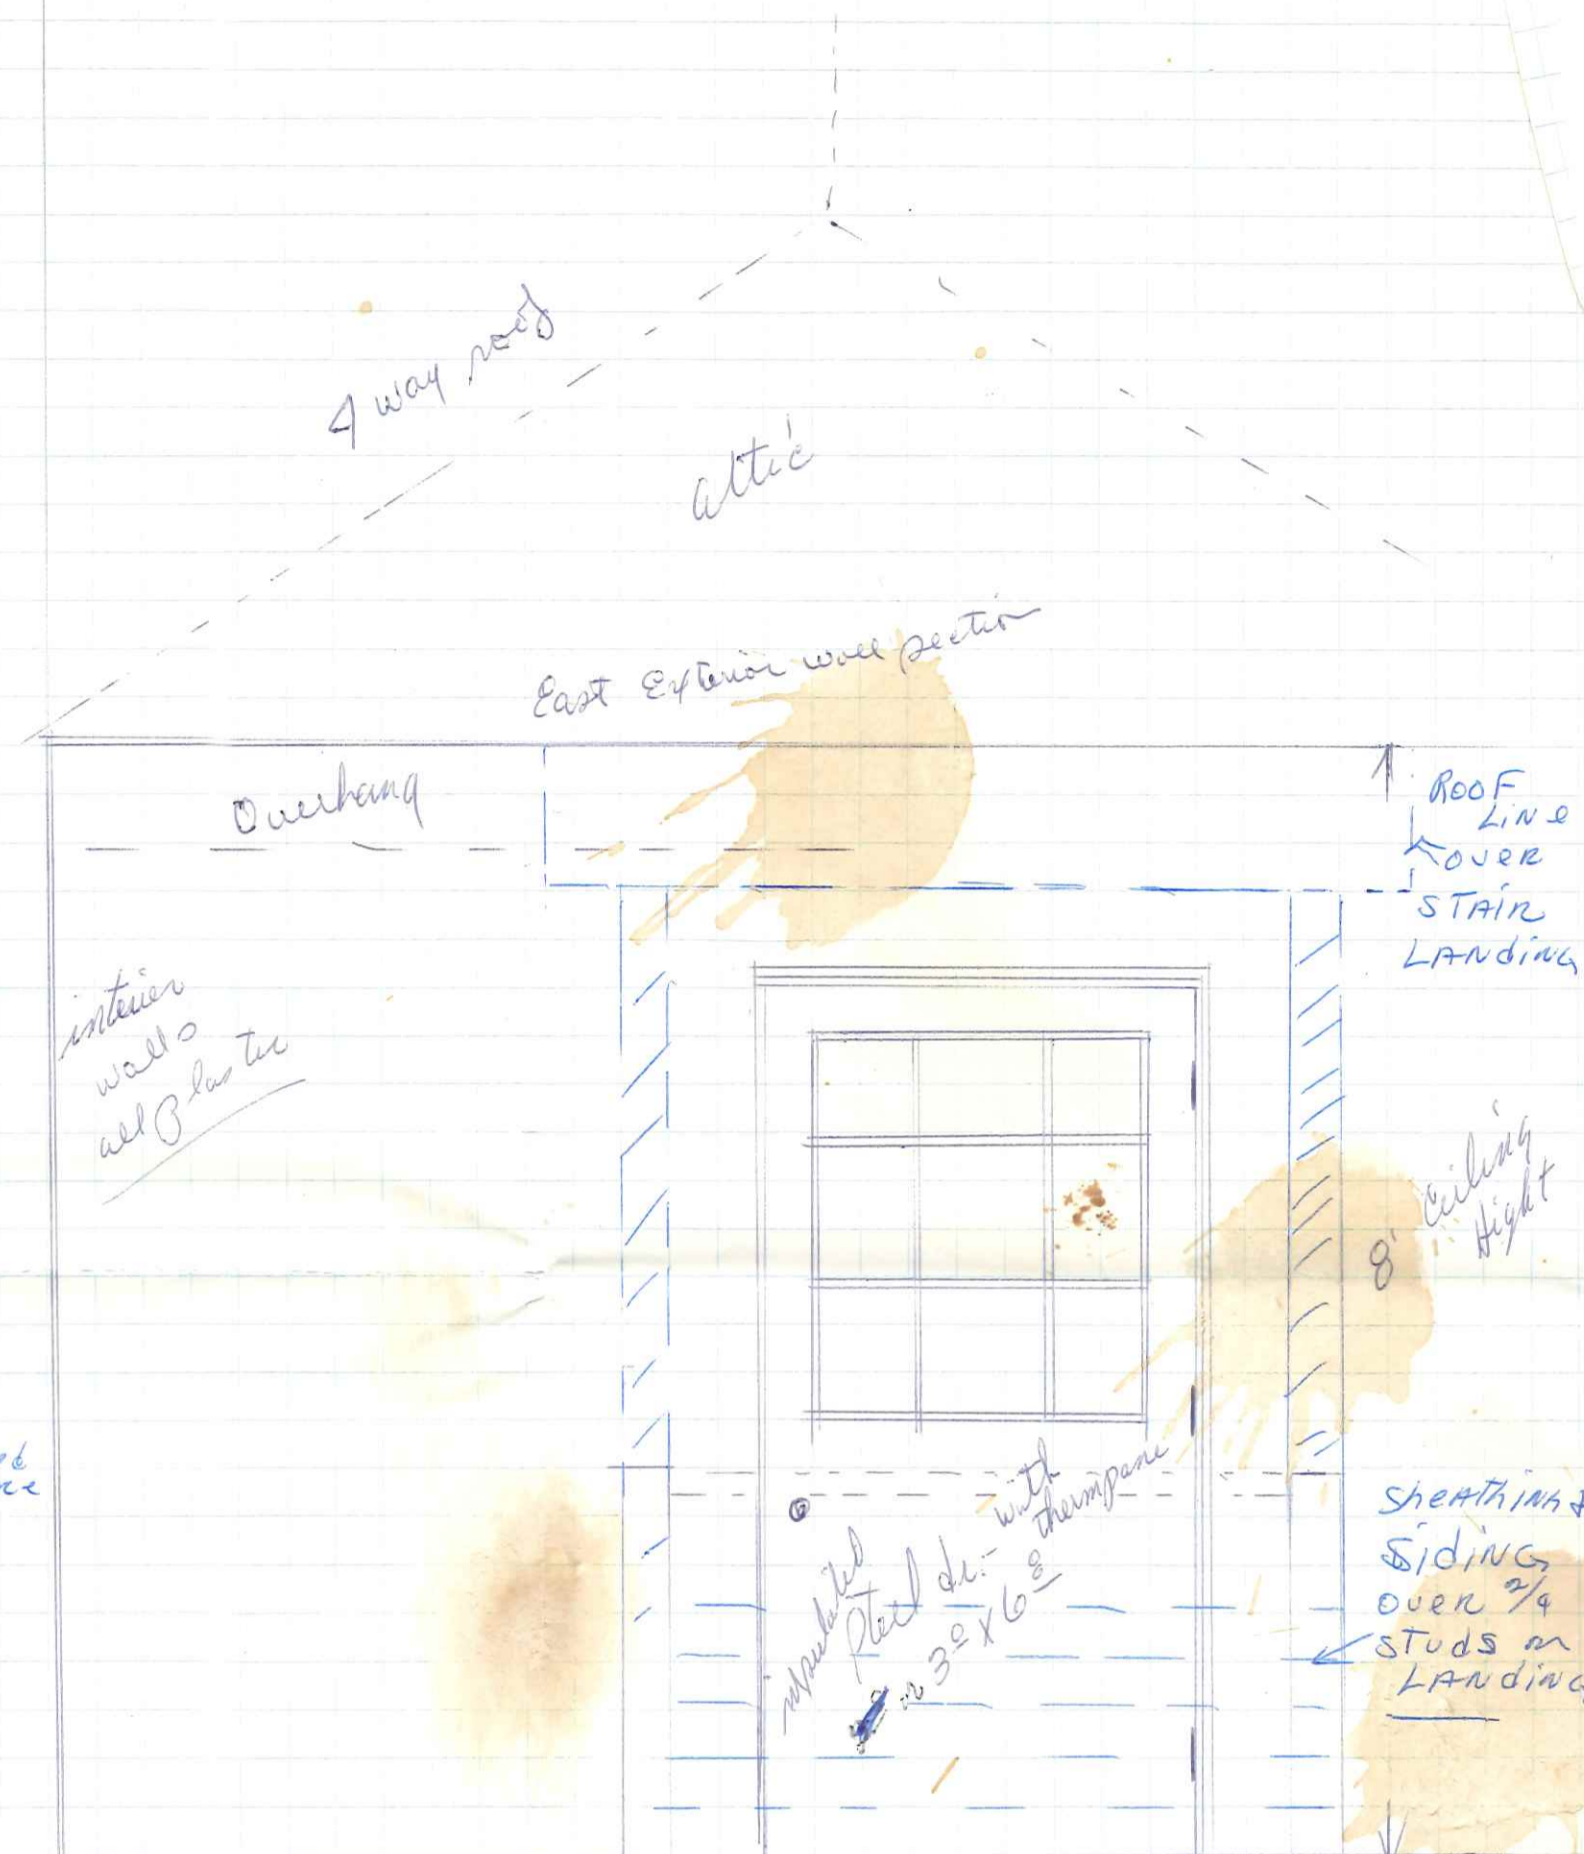 4 way roof
attic
East Exterior wall section
Overhang
ROOF
LINe
OVER
STAIR
LANdiNG
interior
walls
all plaster
8' Ceiling
Hight
insulated
steel dr. - with
thermpane
3º x 6 8
SheAThiNG &
SidiNG
OVER 2/4
STUdS on
LANdiNG